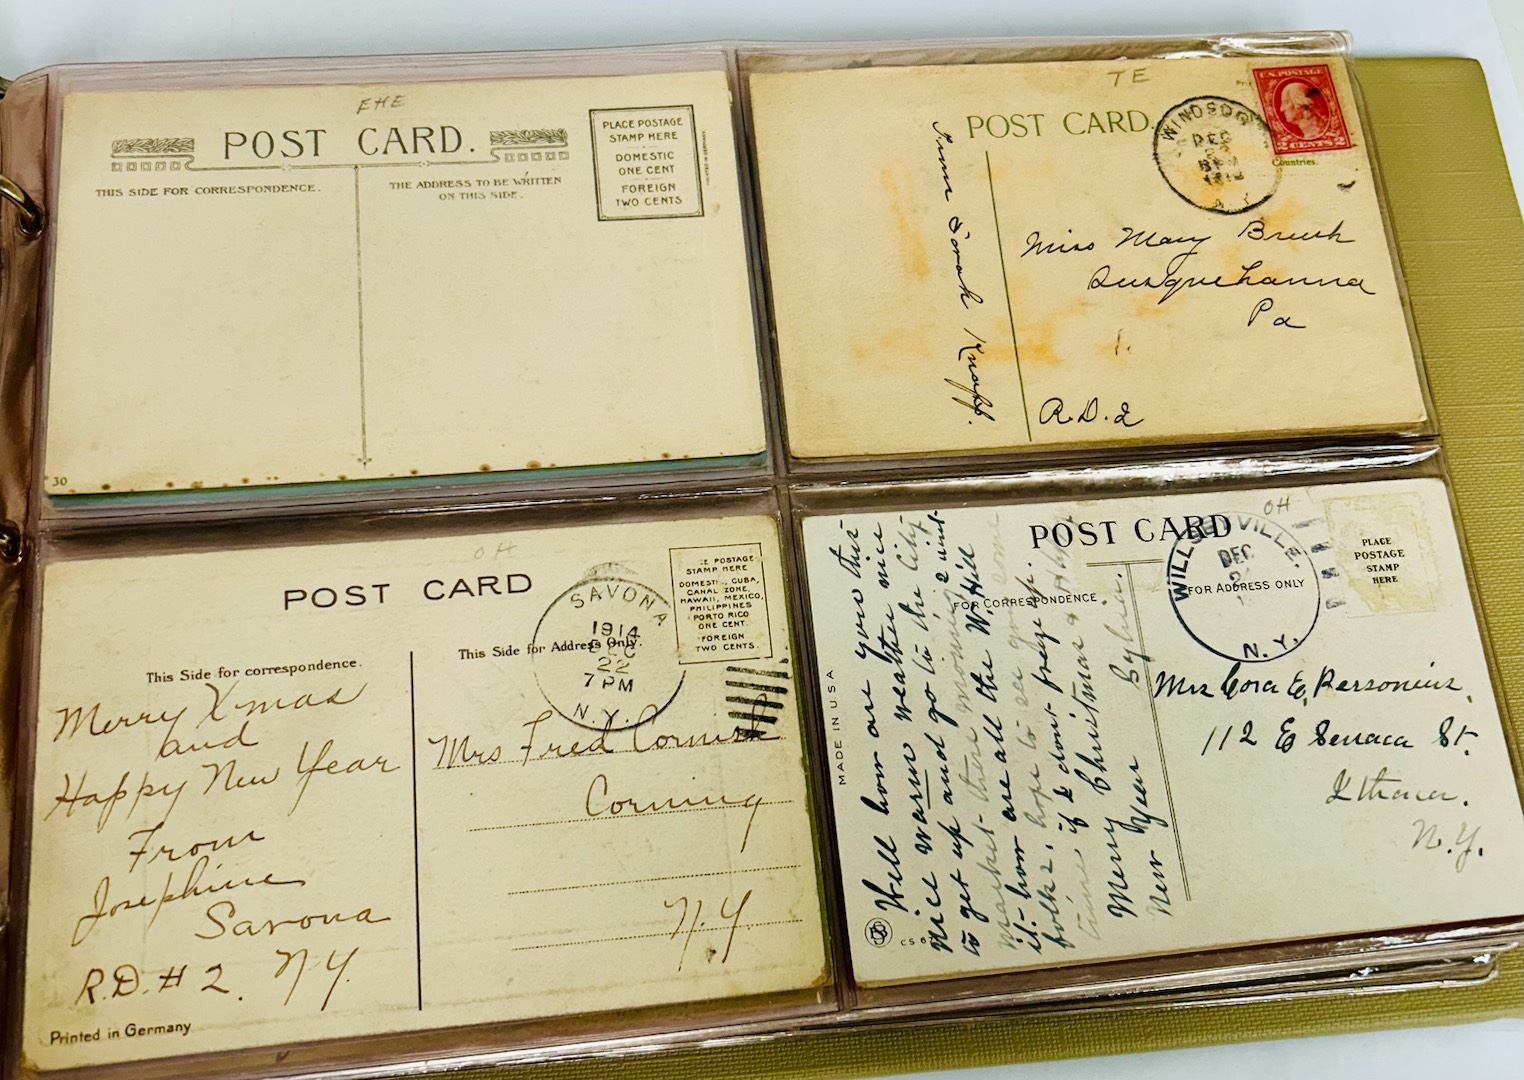 EHE
POST CARD.
THIS SIDE FOR CORRESPONDENCE.
THE ADDRESS TO BE WRITTEN
ON THIS SIDE.
PLACE POSTAGE
STAMP HERE
DOMESTIC
ONE CENT
FOREIGN
TWO CENTS
PRINTED IN GERMANY
30
TE
POST CARD.
WINDSOR
DEC
PM
N.Y.
U.S. POSTAGE
2 CENTS 2
Countries.
From Sarah Knapp.
Miss Mary
Susquehanna
Pa
R.D.2
OH
POST CARD
This Side for correspondence.
This Side for Address Only.
SAVONA
1914
DEC
22
7 PM
N.Y.
E POSTAGE
STAMP HERE
DOMESTIC, CUBA,
CANAL ZONE,
HAWAII, MEXICO,
PHILIPPINES
PORTO RICO
ONE CENT.
FOREIGN
TWO CENTS.
Merry Xmas
and
Happy New Year
From
Josephine
Savona
R.D. # 2. N.Y.
Mrs Fred Cornish
Corning
N.Y.
Printed in Germany
OH
POST CARD
FOR CORRESPONDENCE
FOR ADDRESS ONLY
DEC
N.Y.
PLACE
POSTAGE
STAMP
HERE
MADE IN USA
CS
Well how are you this
nice warm weather nice
to get up and go to the City
market these mornings
it. how are all the W. Hill
folks, hope to see you come
times if I dont freeze up.
Merry Christmas &
New Year Sylvia.
Mrs Cora E.
112 E Seneca St.
Ithaca.
N.Y.